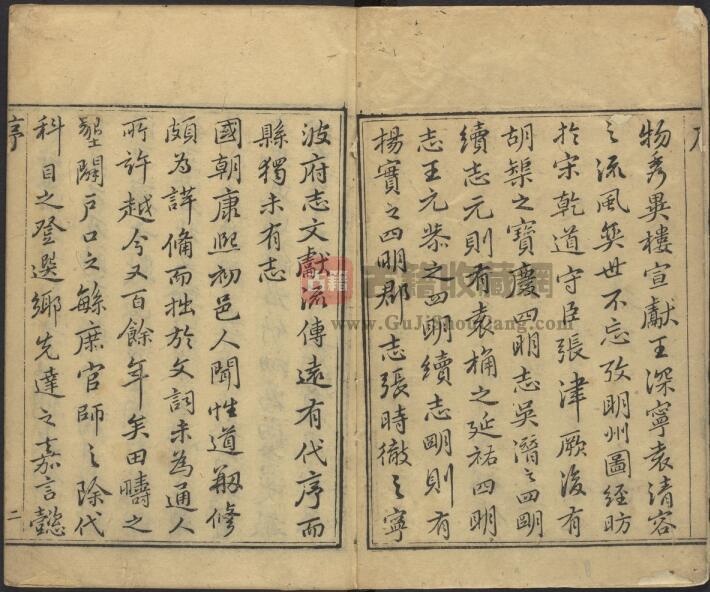 物秀異樓宣獻王深寧袁清容
之流風奕世不忘攷明州圖經昉
於宋乾道守臣張津厥後有
胡榘之寶慶四明志吳潛之四明
續志元則有袁桷之延祐四明
志王元恭之四明續志明則有
楊實之四明郡志張時徹之寧
波府志文獻流傳遠有代序而
縣獨未有志
國朝康熙初邑人聞性道剏修
頗為詳備而拙於文詞未為通人
所許越今又百餘年矣田疇之
墾闢戶口之緐庶官師之除代
科目之登選鄉先達之嘉言懿
序
二
古籍
古籍收藏網
www.GuJiShouCang.com